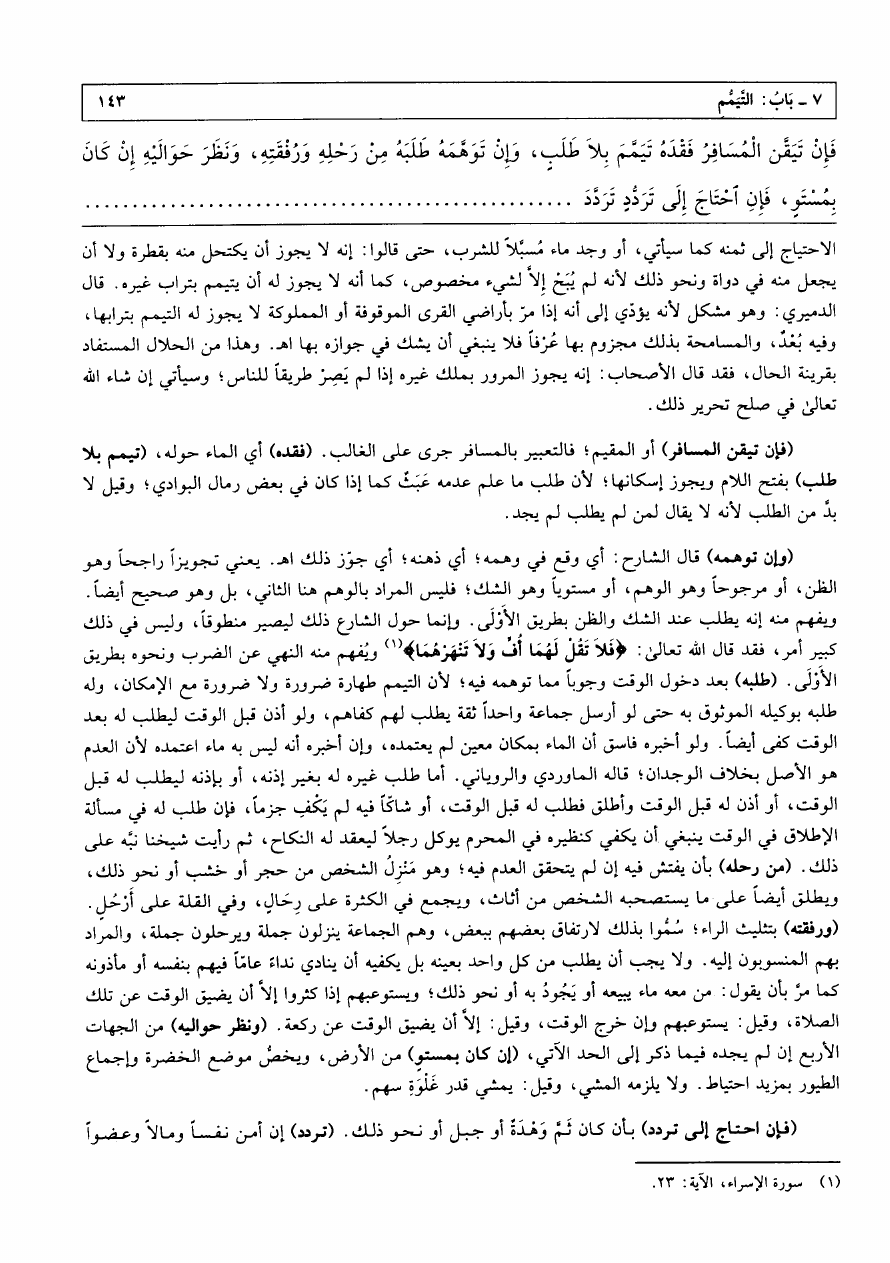 ٧ ـ بَابُ: التَّيَمُّمِ ١٤٣
فَإِنْ تَيَقَّنَ الْمُسَافِرُ فَقْدَهُ تَيَمَّمَ بِلاَ طَلَبٍ، وَإِنْ تَوَهَّمَهُ طَلَبَهُ مِنْ رَحْلِهِ وَرُفْقَتِهِ، وَنَظَرَ حَوَالَيْهِ إِنْ كَانَ
بِمُسْتَوٍ، فَإِنِ ٱحْتَاجَ إِلَى تَرَدُّدٍ تَرَدَّدَ ....................................................
الاحتياج إلى ثمنه كما سيأتي، أو وجد ماء مُسبَّلاً للشرب، حتى قالوا: إنه لا يجوز أن يكتحل منه بقطرة ولا أن
يجعل منه في دواة ونحو ذلك لأنه لم يُبَحْ إلاَّ لشيء مخصوص، كما أنه لا يجوز له أن يتيمم بتراب غيره. قال
الدميري: وهو مشكل لأنه يؤدّي إلى أنه إذا مرّ بأراضي القرى الموقوفة أو المملوكة لا يجوز له التيمم بترابها،
وفيه بُعْدٌ، والمسامحة بذلك مجزوم بها عُرْفاً فلا ينبغي أن يشك في جوازه بها اهـ. وهذا من الحلال المستفاد
بقرينة الحال، فقد قال الأصحاب: إنه يجوز المرور بملك غيره إذا لم يَصِرْ طريقاً للناس؛ وسيأتي إن شاء الله
تعالىٰ في صلح تحرير ذلك.
(فإن تيقن المسافر) أو المقيم؛ فالتعبير بالمسافر جرى على الغالب. (فقده) أي الماء حوله، (تيمم بلا
طلب) بفتح اللام ويجوز إسكانها؛ لأن طلب ما علم عدمه عَبَثٌ كما إذا كان في بعض رمال البوادي؛ وقيل لا
بدَّ من الطلب لأنه لا يقال لمن لم يطلب لم يجد.
(وإن توهمه) قال الشارح: أي وقع في وهمه؛ أي ذهنه؛ أي جوّز ذلك اهـ. يعني تجويزاً راجحاً وهو
الظن، أو مرجوحاً وهو الوهم، أو مستوياً وهو الشك؛ فليس المراد بالوهم هنا الثاني، بل وهو صحيح أيضاً.
ويفهم منه إنه يطلب عند الشك والظن بطريق الأَوْلَى. وإنما حول الشارع ذلك ليصير منطوقاً، وليس في ذلك
كبير أمر، فقد قال الله تعالىٰ: ﴿فَلاَ تَقُلْ لَهُمَا أُفٍّ وَلاَ تَنْهَرْهُمَا﴾(١) ويُفهم منه النهي عن الضرب ونحوه بطريق
الأَوْلَى. (طلبه) بعد دخول الوقت وجوباً مما توهمه فيه؛ لأن التيمم طهارة ضرورة ولا ضرورة مع الإمكان، وله
طلبه بوكيله الموثوق به حتى لو أرسل جماعة واحداً ثقة يطلب لهم كفاهم، ولو أذن قبل الوقت ليطلب له بعد
الوقت كفى أيضاً. ولو أخبره فاسق أن الماء بمكان معين لم يعتمده، وإن أخبره أنه ليس به ماء اعتمده لأن العدم
هو الأصل بخلاف الوجدان؛ قاله الماوردي والروياني. أما طلب غيره له بغير إذنه، أو بإذنه ليطلب له قبل
الوقت، أو أذن له قبل الوقت وأطلق فطلب له قبل الوقت، أو شاكّاً فيه لم يَكْفِ جزماً، فإن طلب له في مسألة
الإطلاق في الوقت ينبغي أن يكفي كنظيره في المحرم يوكل رجلاً ليعقد له النكاح، ثم رأيت شيخنا نبَّه على
ذلك. (من رحله) بأن يفتش فيه إن لم يتحقق العدم فيه؛ وهو مَنْزِلُ الشخص من حجر أو خشب أو نحو ذلك،
ويطلق أيضاً على ما يستصحبه الشخص من أثاث، ويجمع في الكثرة على رِحَالٍ، وفي القلة على أَرْحُلٍ.
(ورفقته) بتثليث الراء؛ سُمُّوا بذلك لارتفاق بعضهم ببعض، وهم الجماعة ينزلون جملة ويرحلون جملة، والمراد
بهم المنسوبون إليه. ولا يجب أن يطلب من كل واحد بعينه بل يكفيه أن ينادي نداءً عامّاً فيهم بنفسه أو مأذونه
كما مرَّ بأن يقول: من معه ماء يبيعه أو يَجُودُ به أو نحو ذلك؛ ويستوعبهم إذا كثروا إلاَّ أن يضيق الوقت عن تلك
الصلاة، وقيل: يستوعبهم وإن خرج الوقت، وقيل: إلاَّ أن يضيق الوقت عن ركعة. (ونظر حواليه) من الجهات
الأربع إن لم يجده فيما ذكر إلى الحد الآتي، (إن كان بمستوٍ) من الأرض، ويخصُّ موضع الخضرة وإجماع
الطيور بمزيد احتياط. ولا يلزمه المشي، وقيل: يمشي قدر غَلْوَةِ سهم.
(فإن احتاج إلى تردد) بأن كان ثَمَّ وَهْدَةٌ أو جبل أو نحو ذلك. (تردد) إن أمن نفساً ومالاً وعضواً
(١) سورة الإسراء، الآية: ٢٣.